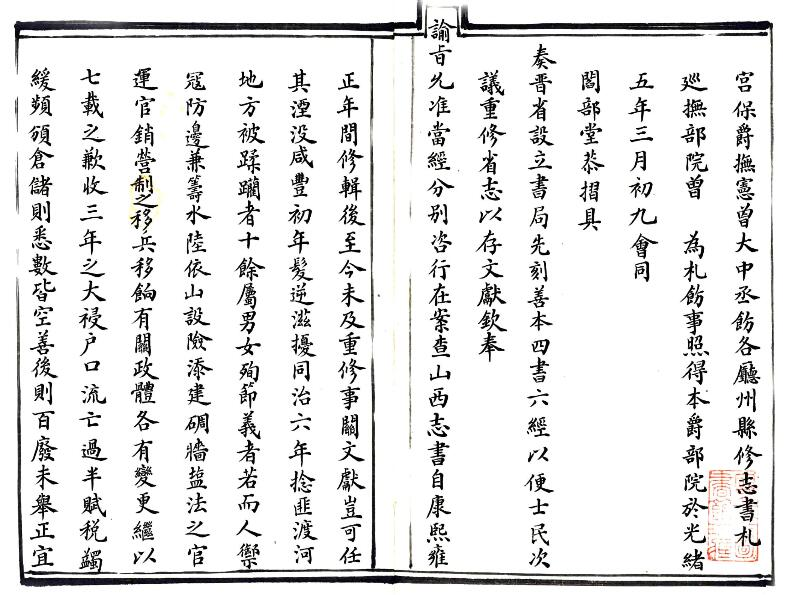 宫保爵撫憲曾大中丞飭各廳州縣修志書札
廵撫部院曾　為札飭事照得本爵部院於光緒
五年三月初九會同
閻部堂恭摺具
奏晋省設立書局先刻善本四書六經以便士民次
議重修省志以存文獻欽奉
諭旨允准當經分别咨行在案查山西志書自康熙雍
正年間修輯後至今未及重修事關文獻豈可任
其湮没咸豐初年髮逆滋擾同治六年捻匪渡河
地方被蹂躪者十餘屬男女殉節義者若而人禦
寇防邊兼籌水陸依山設險添建碉牆塩法之官
運官銷營制之移兵移餉有關政體各有變更繼以
七載之歉收三年之大祲户口流亡過半賦税蠲
緩頻頒倉儲則悉數皆空善後則百廢未舉正宜